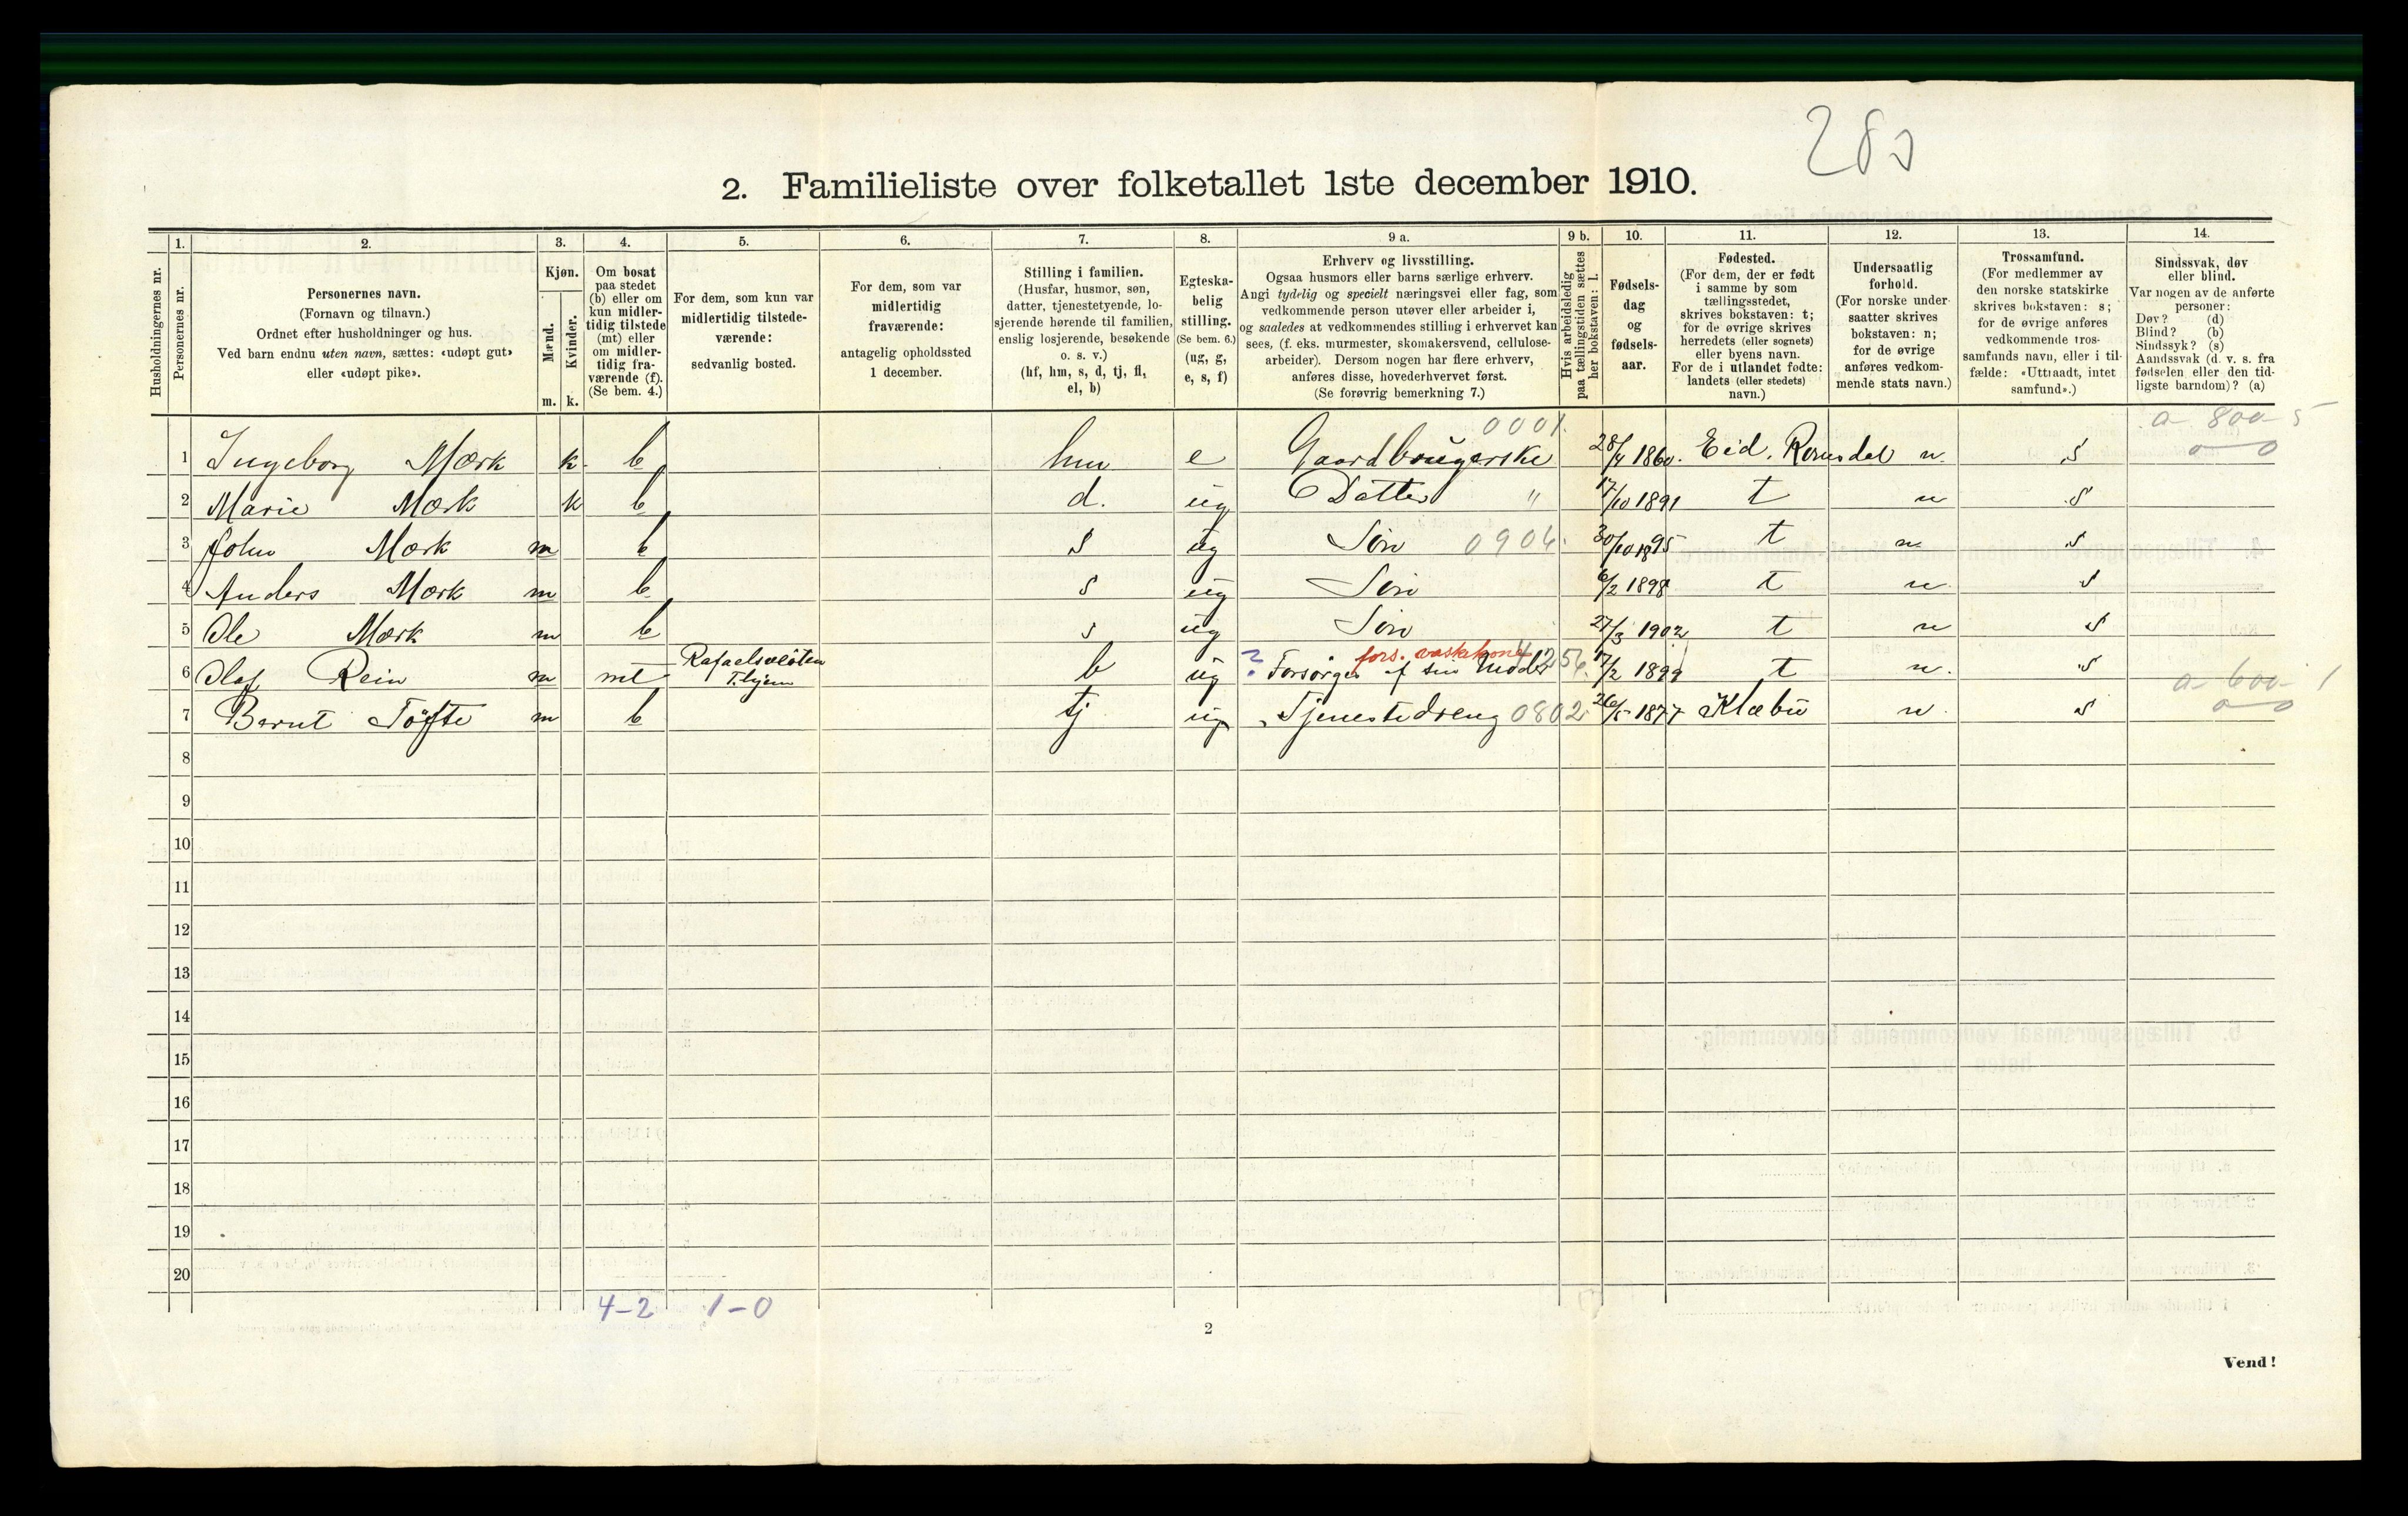 283
2. Familieliste over folketallet 1ste december 1910.
Husholdningernes nr.
1. Personernes nr.
2. Personernes navn.
(Fornavn og tilnavn.)
Ordnet efter husholdninger og hus.
Ved barn endnu uten navn, sættes: «udøpt gut»
eller «udøpt pike».
3. Kjøn.
Mænd. m.
Kvinder. k.
4. Om bosat
paa stedet
(b) eller om
kun midler-
tidig tilstede
(mt) eller
om midler-
tidig fra-
værende (f).
(Se bem. 4.)
5. For dem, som kun var
midlertidig tilstede-
værende:
sedvanlig bosted.
6. For dem, som var
midlertidig
fraværende:
antagelig opholdssted
1 december.
7. Stilling i familien.
(Husfar, husmor, søn,
datter, tjenestetyende, lo-
sjerende hørende til familien,
enslig losjerende, besøkende
o. s. v.)
(hf, hm, s, d, tj, fl,
el, b)
8. Egteska-
belig
stilling.
(Se bem. 6.)
(ug, g,
e, s, f)
9 a. Erhverv og livsstilling.
Ogsaa husmors eller barns særlige erhverv.
Angi tydelig og specielt næringsvei eller fag, som
vedkommende person utøver eller arbeider i,
og saaledes at vedkommendes stilling i erhvervet kan
sees, (f. eks. murmester, skomakersvend, cellulose-
arbeider). Dersom nogen har flere erhverv,
anføres disse, hovederhvervet først.
(Se forøvrig bemerkning 7.)
9 b. Hvis arbeidsledig
paa tællingstiden sættes
her bokstaven: l.
10. Fødsels-
dag
og
fødsels-
aar.
11. Fødested.
(For dem, der er født
i samme by som
tællingsstedet,
skrives bokstaven: t;
for de øvrige skrives
herredets (eller sognets)
eller byens navn.
For de i utlandet fødte:
landets (eller stedets)
navn.)
12. Undersaatlig
forhold.
(For norske under-
saatter skrives
bokstaven: n;
for de øvrige
anføres vedkom-
mende stats navn.)
13. Trossamfund.
(For medlemmer av
den norske statskirke
skrives bokstaven: s;
for de øvrige anføres
vedkommende tros-
samfunds navn, eller i til-
fælde: «Uttraadt, intet
samfund».)
14. Sindssvak, døv
eller blind.
Var nogen av de anførte
personer:
Døv? (d)
Blind? (b)
Sindssyk? (s)
Aandssvak (d. v. s. fra
fødselen eller den tid-
ligste barndom)? (a)
0001. a 800-5
1 Ingeborg Mærk k. b hm e Gaardbrugerske 28/4 1860. Eid. Romsdal n. s 0-0
2 Marie Mærk k b d. ug Datter " 17/10 1891 t n s
3 John Mærk m b s ug Søn 0904. 30/10 1895 t n s
4 Anders Mærk m b s ug Søn 6/2 1898 t n s
5 Ole Mærk m b s ug Søn 27/3 1902 t n s
fors. vaskekone
6 Olaf Rein m mt Tr.hjem b ug ? Forsørges af sin Moder 17/2 1899 t n. s
a 600-1
7 Bernt Töfte m b tj ug Tjenestedreng 0802 26/5 1877 Klæbu n. s 0-0
8
9
10
11
12
13
14
15
16
17
18
19
20
4-2 1-0
2
Vend!